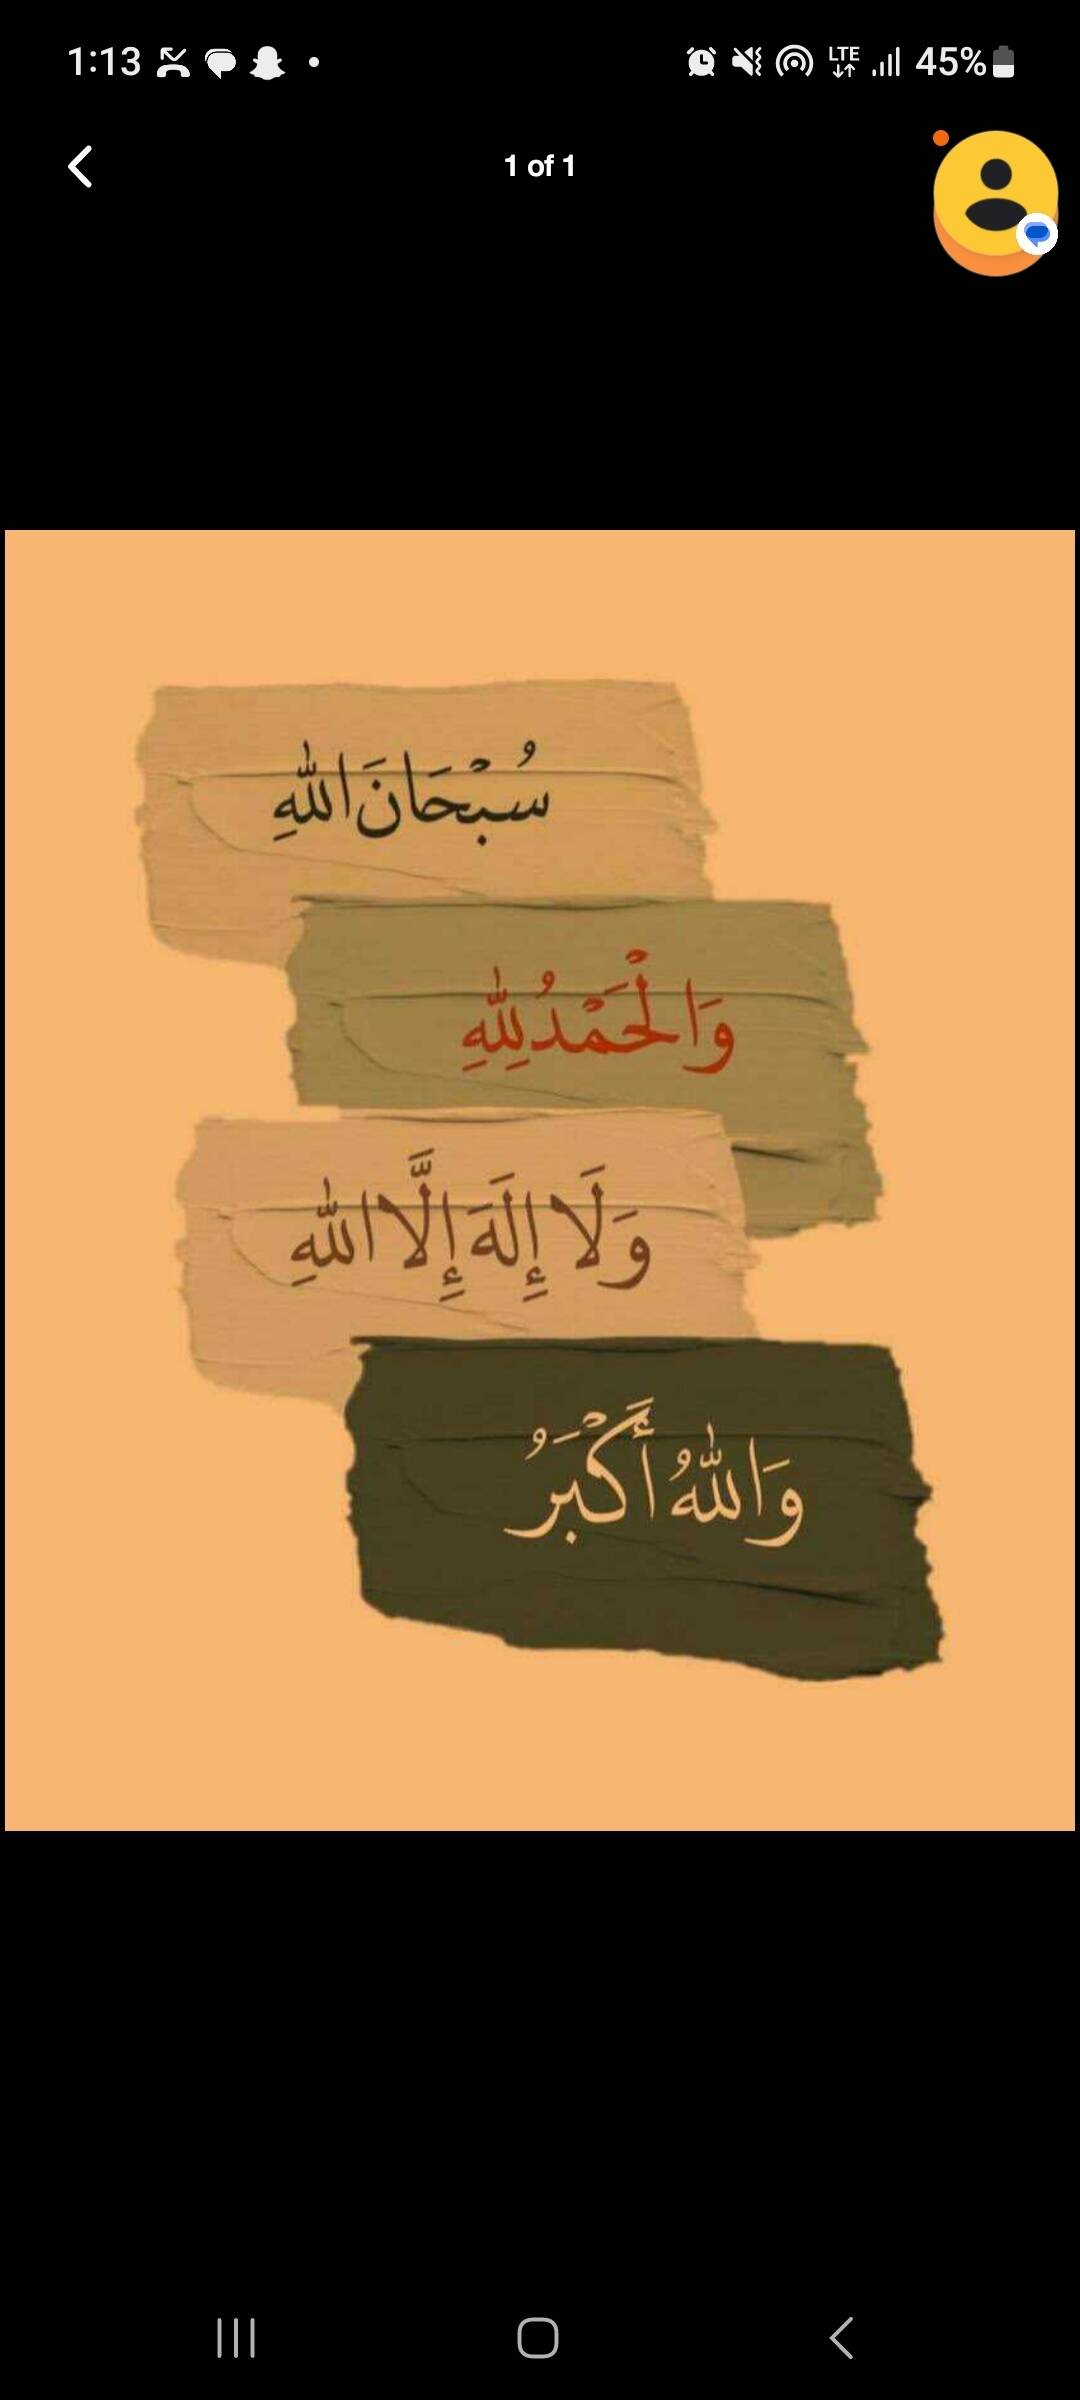 1:13 LTE 45%
1 of 1
سُبْحَانَ اللهِ
وَالْحَمْدُ لِلّٰهِ
وَلَا إِلَهَ إِلَّا اللهِ
وَاللهُ أَكْبَرُ